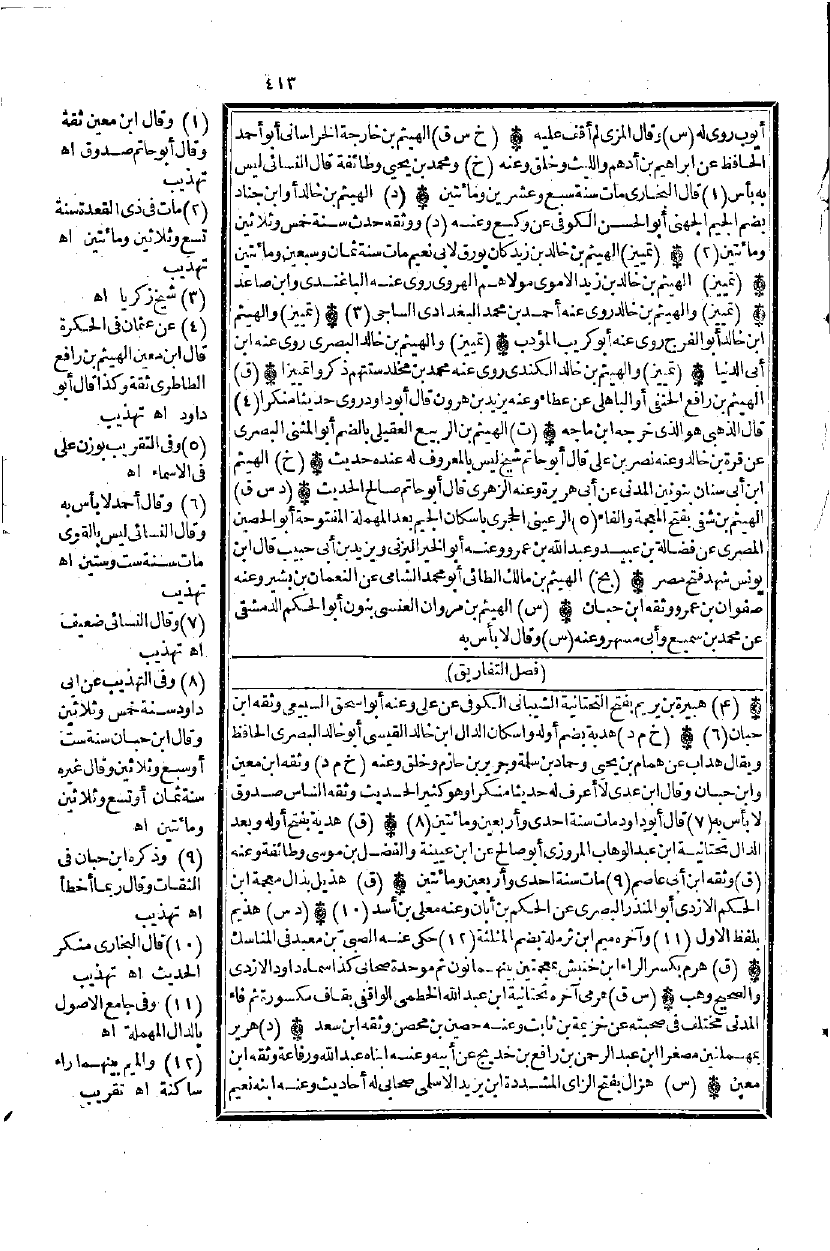 ٤١٣
أيوب روى له (س) وقال المزى لم أقف عليه ۞ (خ س ق) الهيثم بن خارجة الخراسانى أبو أحمد
الحافظ عن ابراهيم بن أدهم والليث وخلق وعنه (خ) ومحمد بن يحيى وطائفة قال النسائى ليس
به بأس (١) قال البخارى مات سنة سبع وعشرين ومائتين ۞ (د) الهيثم بن خالد أو ابن جناد
بضم الجيم الجهنى أبو الحسن الكوفى عن وكيع وعنه (د) ووثقه حدث سنة خمس وثلاثين
ومائتين (٢) ۞ (تمييز) الهيثم بن خالد بن زيد كان يورق لابى نعيم مات سنة ثمان وسبعين ومائتين
۞ (تمييز) الهيثم بن خالد بن زيد الاموى مولاهم الهروى روى عنه الباغندى وابن صاعد
۞ (تمييز) والهيثم بن خالد روى عنه أحمد بن محمد البغدادى الساجى (٣) ۞ (تمييز) والهيثم
ابن خالد أبو الفرج روى عنه أبو كريب المؤدب ۞ (تمييز) والهيثم بن خالد البصرى روى عنه ابن
أبى الدنيا ۞ (تمييز) والهيثم بن خالد الكندى روى عنه محمد بن مخلد ستتهم ذكروا تمييزا ۞ (ق)
الهيثم بن رافع الحنفى أو الباهلى عن عطاء وعنه يزيد بن هرون قال أبو داود روى حديثا منكرا (٤)
قال الذهبى هو الذى خرجه ابن ماجه ۞ (ت) الهيثم بن الربيع العقيلى بالضم أبو المثنى البصرى
عن قرة بن خالد وعنه نصر بن على قال أبو حاتم شيخ ليس بالمعروف له عنده حديث ۞ (خ) الهيثم
ابن أبى سنان بنونين المدنى عن أبى هريرة وعنه الزهرى قال أبو حاتم صالح الحديث ۞ (د س ق)
الهيثم بن شفى بفتح المعجمة والفاء (٥) الرعينى الحجرى باسكان الجيم بعد المهملة المفتوحة أبو الحصين
المصرى عن فضالة بن عبيد وعبد الله بن عمرو وعنه أبو الخير اليزنى ويزيد بن أبى حبيب قال ابن
يونس شهد فتح مصر ۞ (بخ) الهيثم بن مالك الطائى أبو محمد الشامى عن النعمان بن بشير وعنه
صفوان بن عمرو وثقه ابن حبان ۞ (س) الهيثم بن مروان العنسى بنون أبو الحكم الدمشقى
عن محمد بن سميع وأبى مسهر وعنه (س) وقال لا بأس به
(فصل التفاريق)
۞ (٤) هبيرة بن يريم بفتح التحتانية الشيبانى الكوفى عن على وعنه أبو اسحق السبيعى وثقه ابن
حبان (٦) ۞ (خ م د) هدبة بضم أوله واسكان الدال ابن خالد القيسى أبو خالد البصرى الحافظ
ويقال هداب عن همام بن يحيى وحماد بن سلمة وجرير بن حازم وخلق وعنه (خ م د) وثقه ابن معين
وابن حبان وقال ابن عدى لا أعرف له حديثا منكرا وهو كثير الحديث وثقه الناس صدوق
لا بأس به (٧) قال أبو داود مات سنة احدى وأربعين ومائتين (٨) ۞ (ق) هدية بفتح أوله وبعد
الدال تحتانية ابن عبد الوهاب المروزى أبو صالح عن ابن عيينة والفضل بن موسى وطائفة وعنه
(ق) وثقه ابن أبى عاصم (٩) مات سنة احدى وأربعين ومائتين ۞ (ق) هذيل بذال معجمة ابن
الحكم الازدى أبو المنذر البصرى عن الحكم بن أبان وعنه معلى بن أسد (١٠) ۞ (د س) هذيم
بلفظ الاول (١١) وآخره ميم ابن ثرملة بضم المثلثة (١٢) حكى عنه الصبى بن معبد فى المناسك
۞ (ق) هرم بكسر الراء ابن خنبش بمعجمتين بينهما نون ثم موحدة صحابى كذا سماه داود الازدى
والصحيح وهب ۞ (س ق) هرمى آخره تحتانية ابن عبد الله الخطمى الواقفى بقاف مكسورة ثم فاء
المدنى مختلف فى صحبته عن خزيمة بن ثابت وعنه حصين بن محصن وثقه ابن سعد ۞ (د) هرير
بمهملتين مصغرا ابن عبد الرحمن بن رافع بن خديج عن أبيه وعنه ابناه عبد الله ورفاعة وثقه ابن
معين ۞ (س) هزال بفتح الزاى المشددة ابن يزيد الاسلمى صحابى له أحاديث وعنه ابنه نعيم
(١) وقال ابن معين ثقة
وقال أبو حاتم صدوق اه
تهذيب
(٢) مات فى ذى القعدة سنة
تسع وثلاثين ومائتين اه
تهذيب
(٣) شيخ زكريا اه
(٤) عن عثمان فى الحكرة
قال ابن معين الهيثم بن رافع
الطاطرى ثقة وكذا قال أبو
داود اه تهذيب
(٥) وفى التقريب بوزن على
فى الاسماء اه
(٦) وقال أحمد لا بأس به
وقال النسائى ليس بالقوى
مات سنة ست وستين اه
تهذيب
(٧) وقال النسائى ضعيف
اه تهذيب
(٨) وفى التهذيب عن ابى
داود سنة خمس وثلاثين
وقال ابن حبان سنة ست
أو سبع وثلاثين وقال غيره
سنة ثمان أو تسع وثلاثين
ومائتين اه
(٩) وذكره ابن حبان فى
الثقات وقال ربما أخطأ
اه تهذيب
(١٠) قال البخارى منكر
الحديث اه تهذيب
(١١) وفى جامع الاصول
بالدال المهملة اه
(١٢) والميم بينهما راء
ساكنة اه تقريب